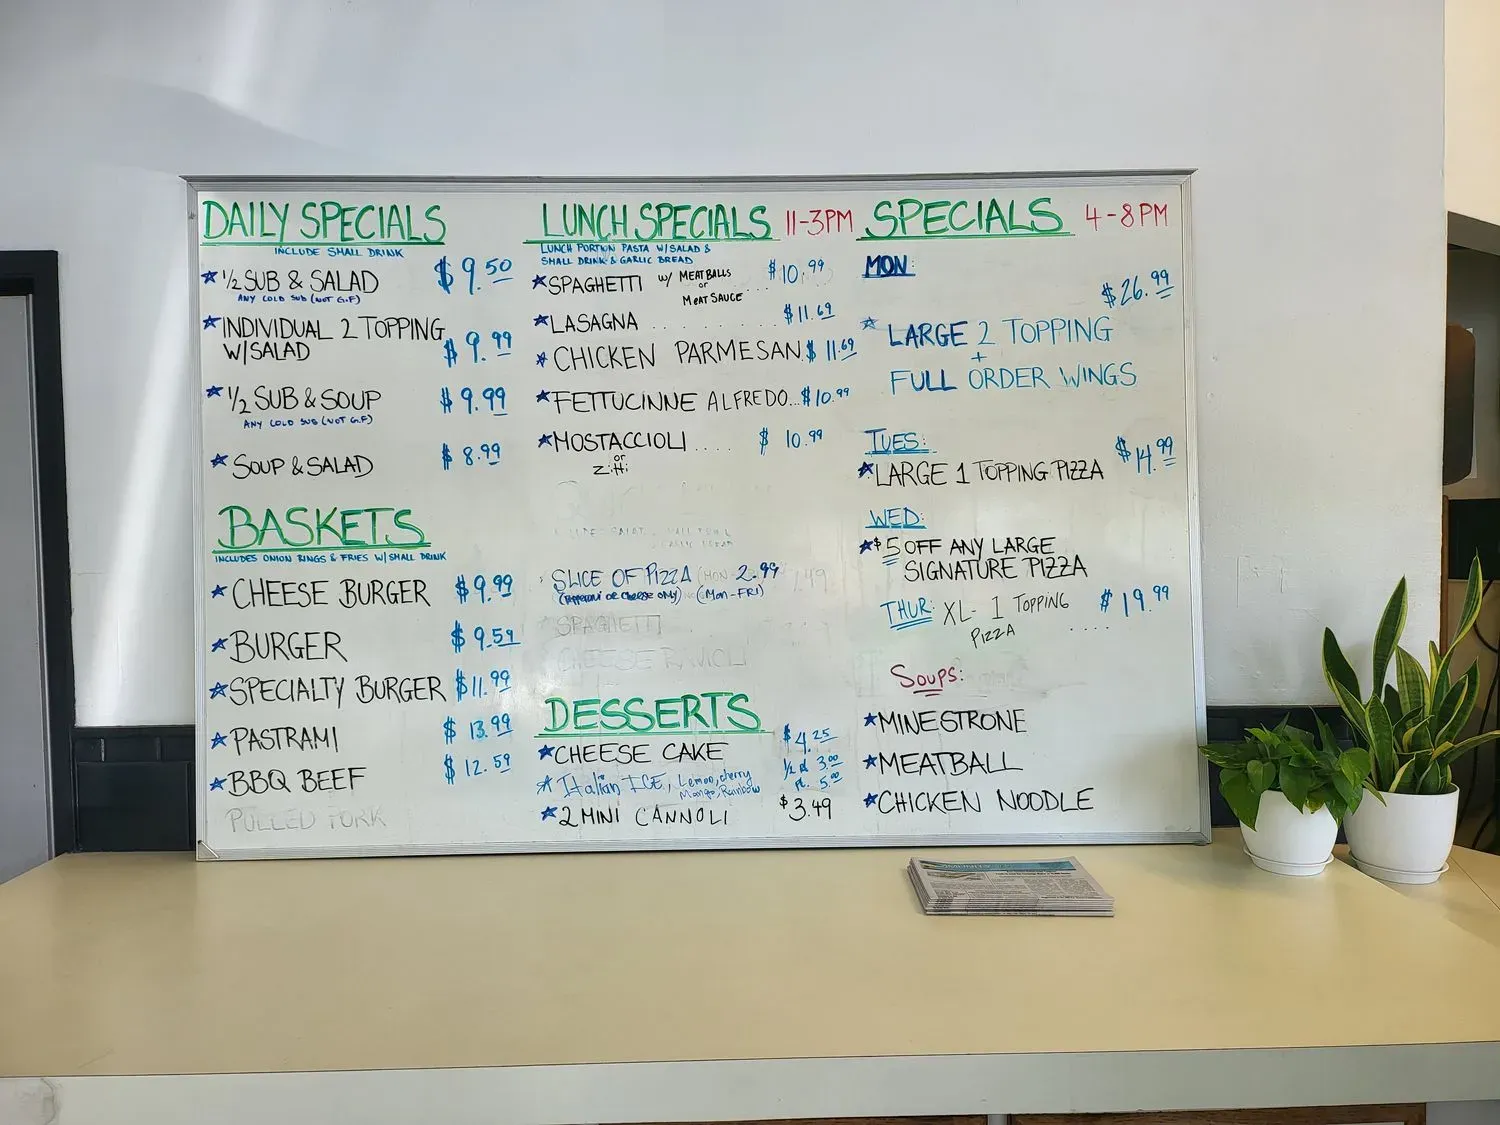 DAILY SPECIALS
INCLUDE SMALL DRINK
½ SUB & SALAD $9.50
ANY COLD SUB (NOT G.F)
INDIVIDUAL 2 TOPPING
W/SALAD $9.99
½ SUB & SOUP $9.99
ANY COLD SUB (NOT G.F)
SOUP & SALAD $8.99
BASKETS
INCLUDES ONION RINGS & FRIES W/ SMALL DRINK
CHEESE BURGER $9.99
BURGER $9.59
SPECIALTY BURGER $11.99
PASTRAMI $13.99
BBQ BEEF $12.59
PULLED PORK
LUNCH SPECIALS 11-3PM
LUNCH PORTION PASTA W/SALAD &
SMALL DRINK & GARLIC BREAD
SPAGHETTI W/ MEATBALLS $10.99
or
MEAT SAUCE
LASAGNA ........ $11.69
CHICKEN PARMESAN $11.69
FETTUCINNE ALFREDO... $10.99
MOSTACCIOLI .... $10.99
or
Ziti
SLICE OF PIZZA 2.99
(PEPPERONI OR CHEESE ONLY) (MON-FRI)
SPAGHETTI
CHEESE RAVIOLI
DESSERTS
CHEESE CAKE $4.25
Italian ICE, Lemon, cherry ½ pt 3.00
Mango, Rainbow pt. 5.00
2 MINI CANNOLI $3.49
SPECIALS 4-8PM
MON:
$26.99
LARGE 2 TOPPING
+
FULL ORDER WINGS
TUES:
LARGE 1 TOPPING PIZZA $14.99
WED:
$5 OFF ANY LARGE
SIGNATURE PIZZA
THUR: XL- 1 TOPPING $19.99
PIZZA ....
SOUPS:
MINESTRONE
MEATBALL
CHICKEN NOODLE